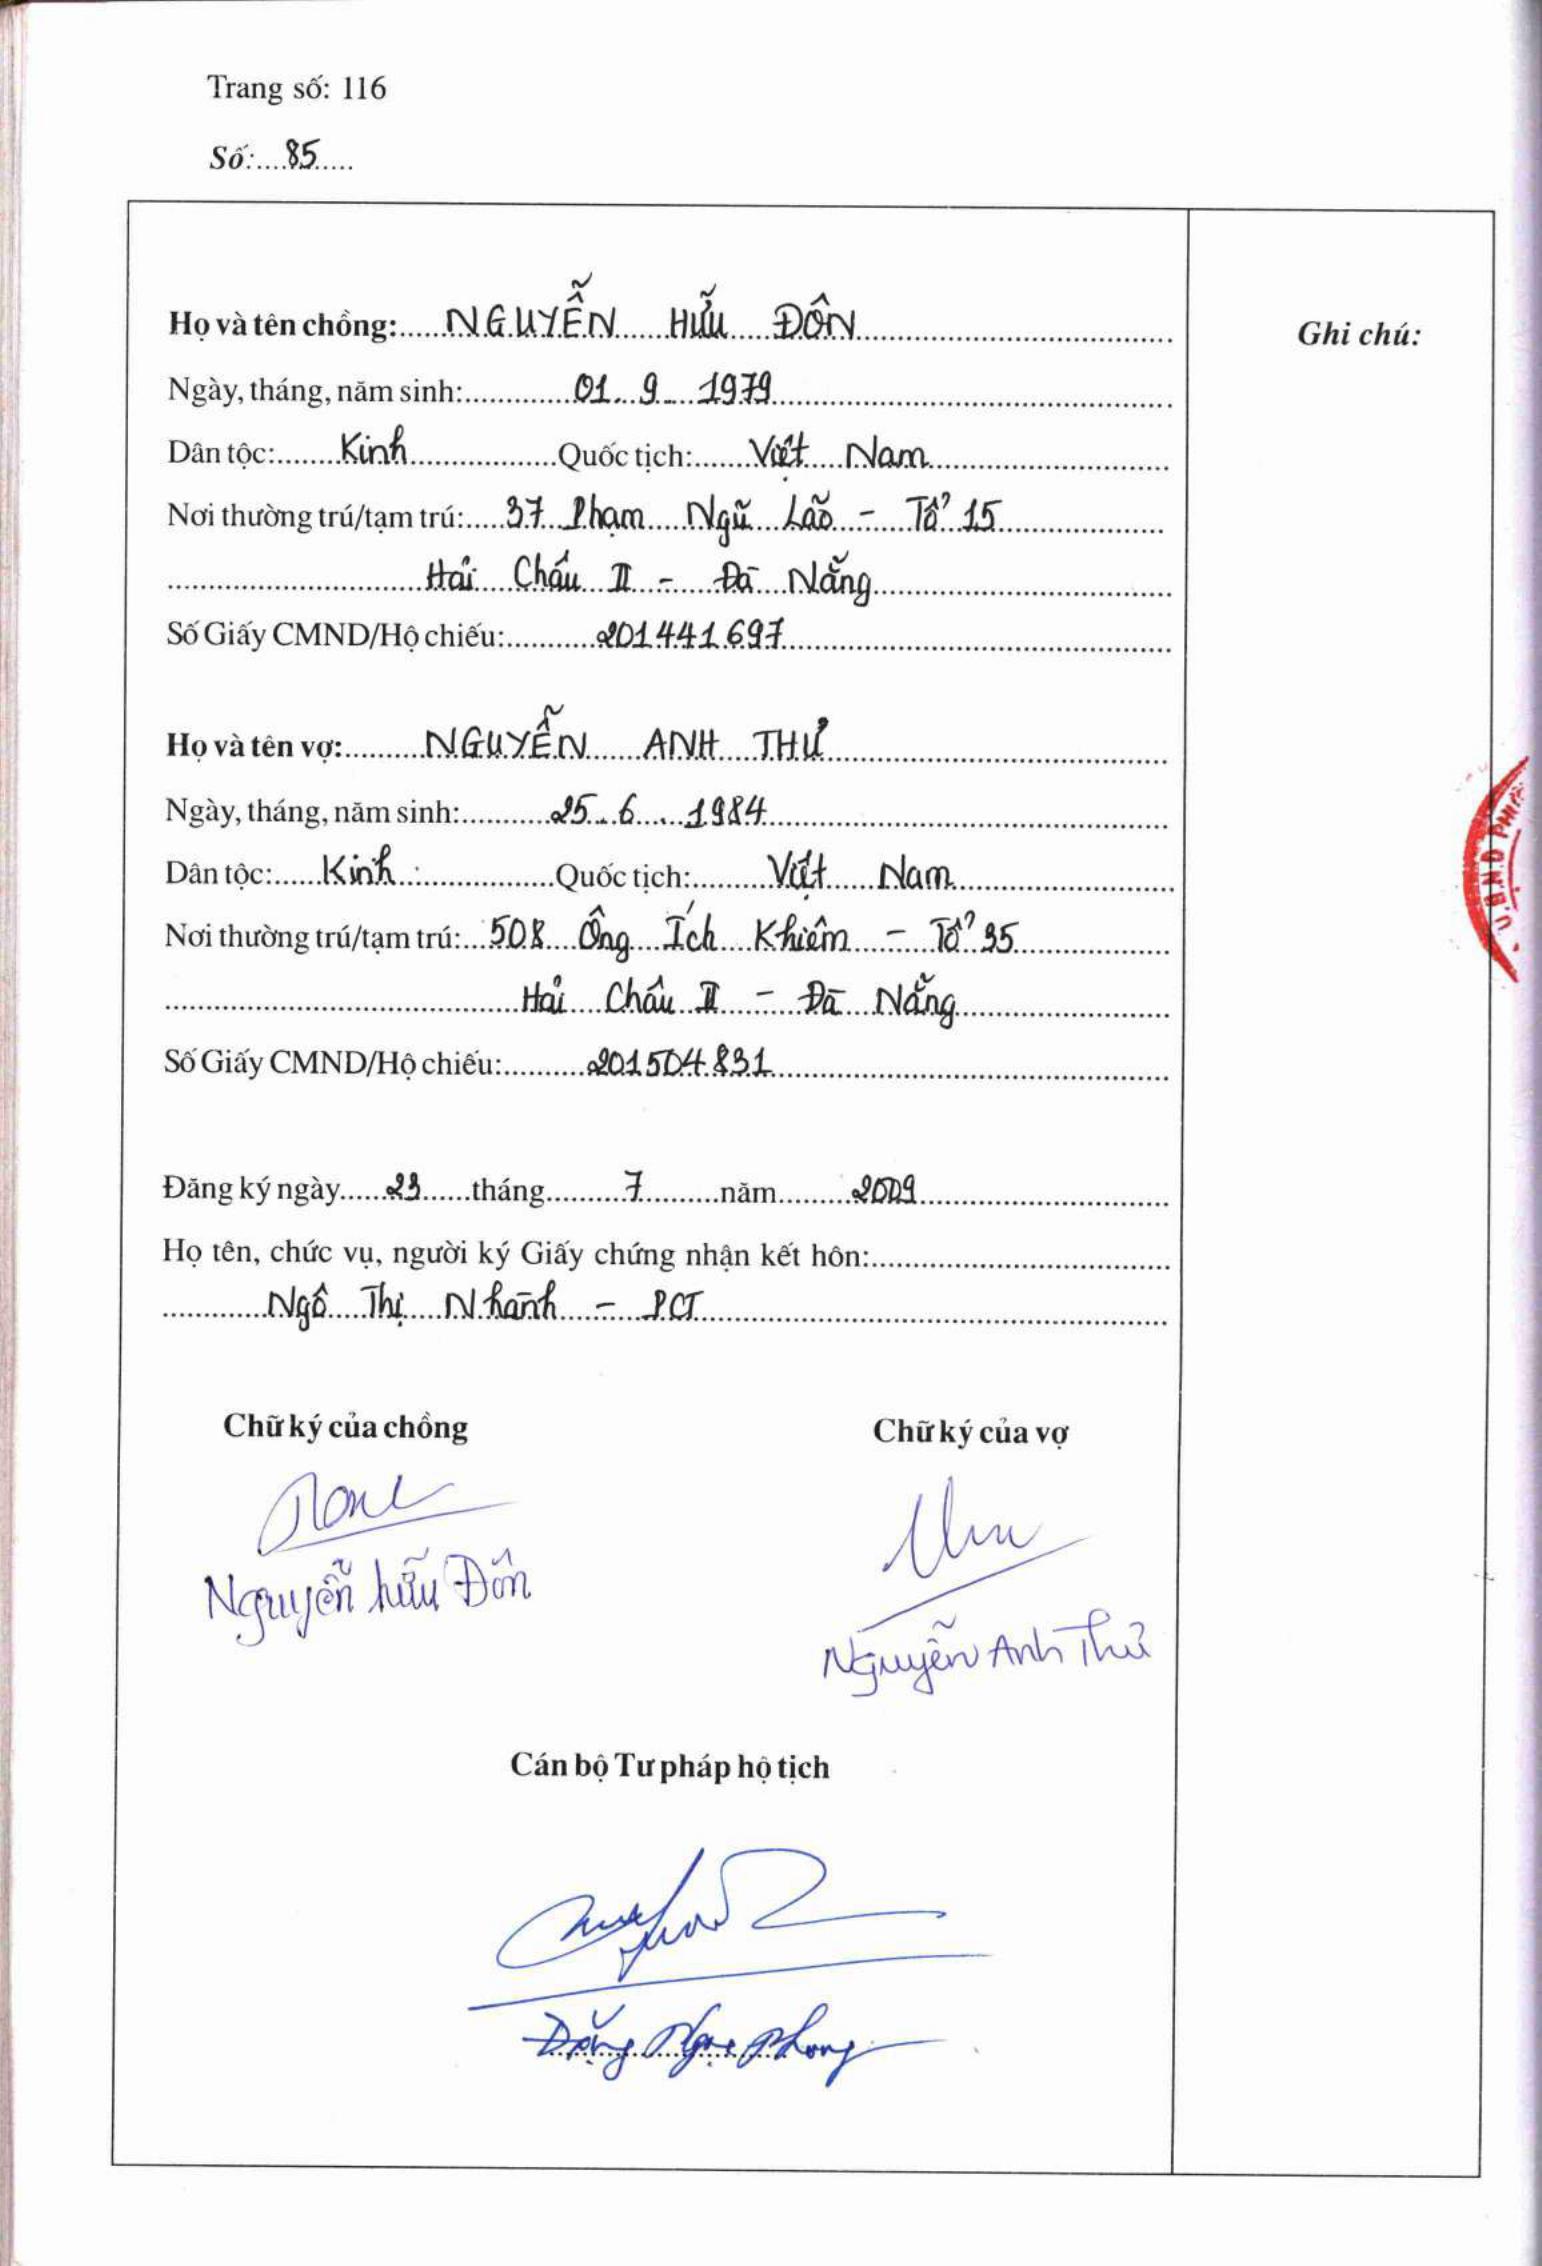 Trang số: 116
Số:....85.....
Họ và tên chồng: NGUYỄN HỮU ĐÔN
Ghi chú:
Ngày, tháng, năm sinh: 01. 9 . 1979
Dân tộc: Kinh Quốc tịch: Việt Nam
Nơi thường trú/tạm trú: 37 Phạm Ngũ Lão - Tổ 15
Hải Châu II - Đà Nẵng
Số Giấy CMND/Hộ chiếu: 201441697
Họ và tên vợ: NGUYỄN ANH THƯ
Ngày, tháng, năm sinh: 25 . 6 . 1984
Dân tộc: Kinh Quốc tịch: Việt Nam
Nơi thường trú/tạm trú: 508 Ông Ích Khiêm - Tổ 35
Hải Châu II - Đà Nẵng
Số Giấy CMND/Hộ chiếu: 201504831
U.B.N.D PHƯỜ
Đăng ký ngày 23 tháng 7 năm 2009
Họ tên, chức vụ, người ký Giấy chứng nhận kết hôn:
Ngô Thị Nhành - PCT
Chữ ký của chồng
Chữ ký của vợ
Nguyễn Hữu Đôn
Nguyễn Anh Thư
Cán bộ Tư pháp hộ tịch
Đặng Ngọc Phong